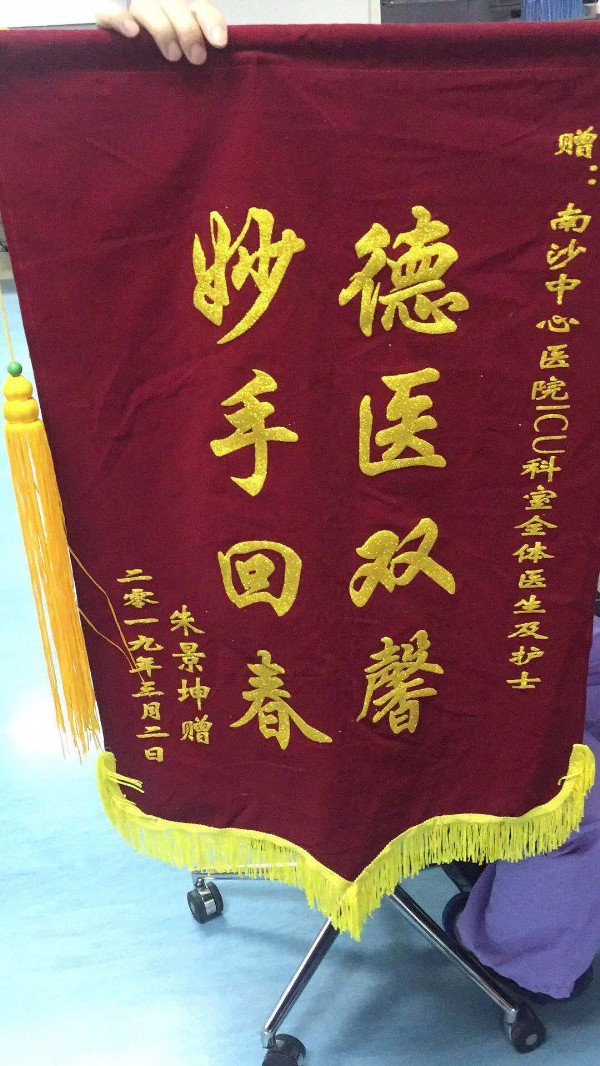 赠：南沙中心医院ICU科室全体医生及护士
德医双馨
妙手回春
朱景坤赠
二零一九年三月二日